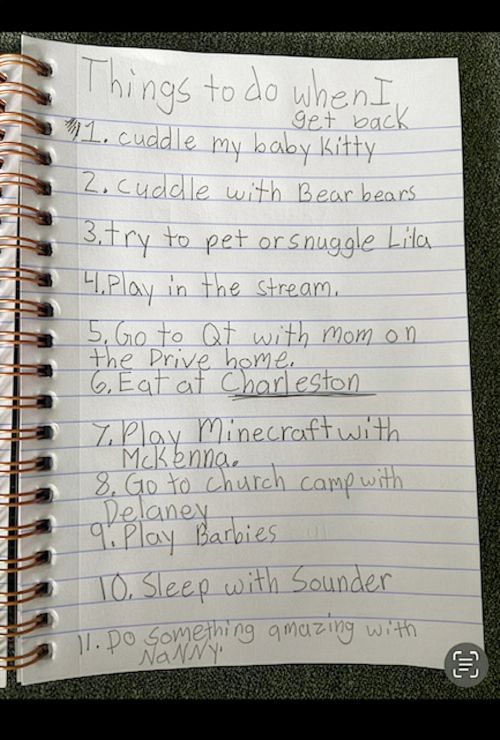 Things to do when I
get back
1. cuddle my baby Kitty
2. cuddle with Bear bears
3. try to pet or snuggle Lila
4. Play in the stream.
5. Go to QT with mom on
the Drive home.
6. Eat at Charleston
7. Play Minecraft with
McKenna.
8. Go to church camp with
Delaney
9. Play Barbies
10. Sleep with Sounder
11. Do something amazing with
NaNNy.